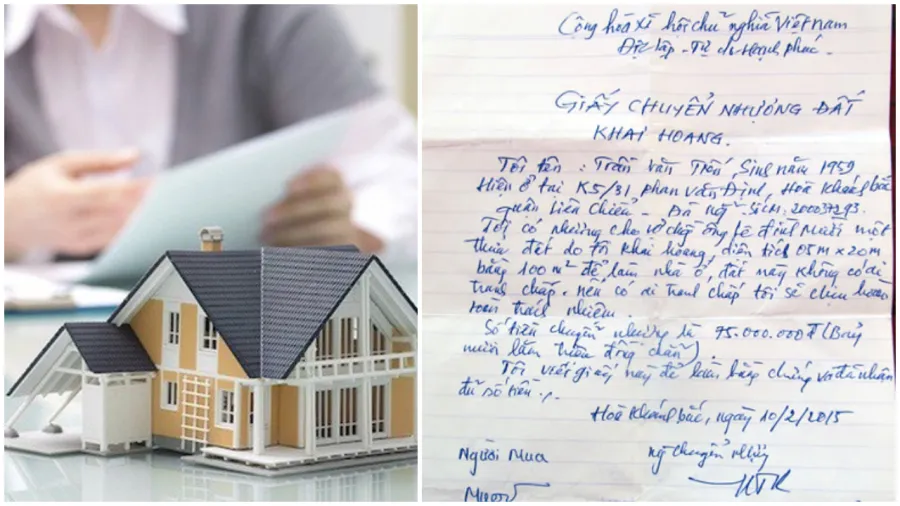 Cộng hoà xã hội chủ nghĩa Việt Nam
Độc lập - Tự do - Hạnh phúc.
GIẤY CHUYỂN NHƯỢNG ĐẤT
KHAI HOANG.
Tôi tên : Trần Văn Trốn, Sinh năm 1959
Hiện ở tại K5/31 Phan Văn Định, Hoà Khánh bắc
quận Liên Chiểu - Đà Nẵng - Số CM. 200037293.
Tôi có nhường cho vợ chồng ông Lê Đình Mười một
thửa đất do tôi khai hoang, diện tích 05m x 20m
bằng 100m² để làm nhà ở, đất này không có di
tranh chấp. nếu có di tranh chấp tôi sẽ chịu hoàn
toàn trách nhiệm.
Số tiền chuyển nhượng là 75.000.000đ (Bảy
mươi lăm triệu đồng chẵn).
Tôi viết giấy này để làm bằng chứng và đã nhận
đủ số tiền ./.
Hoà Khánh bắc, ngày 10/2/2015
Người Mua
ng chuyển nhượng